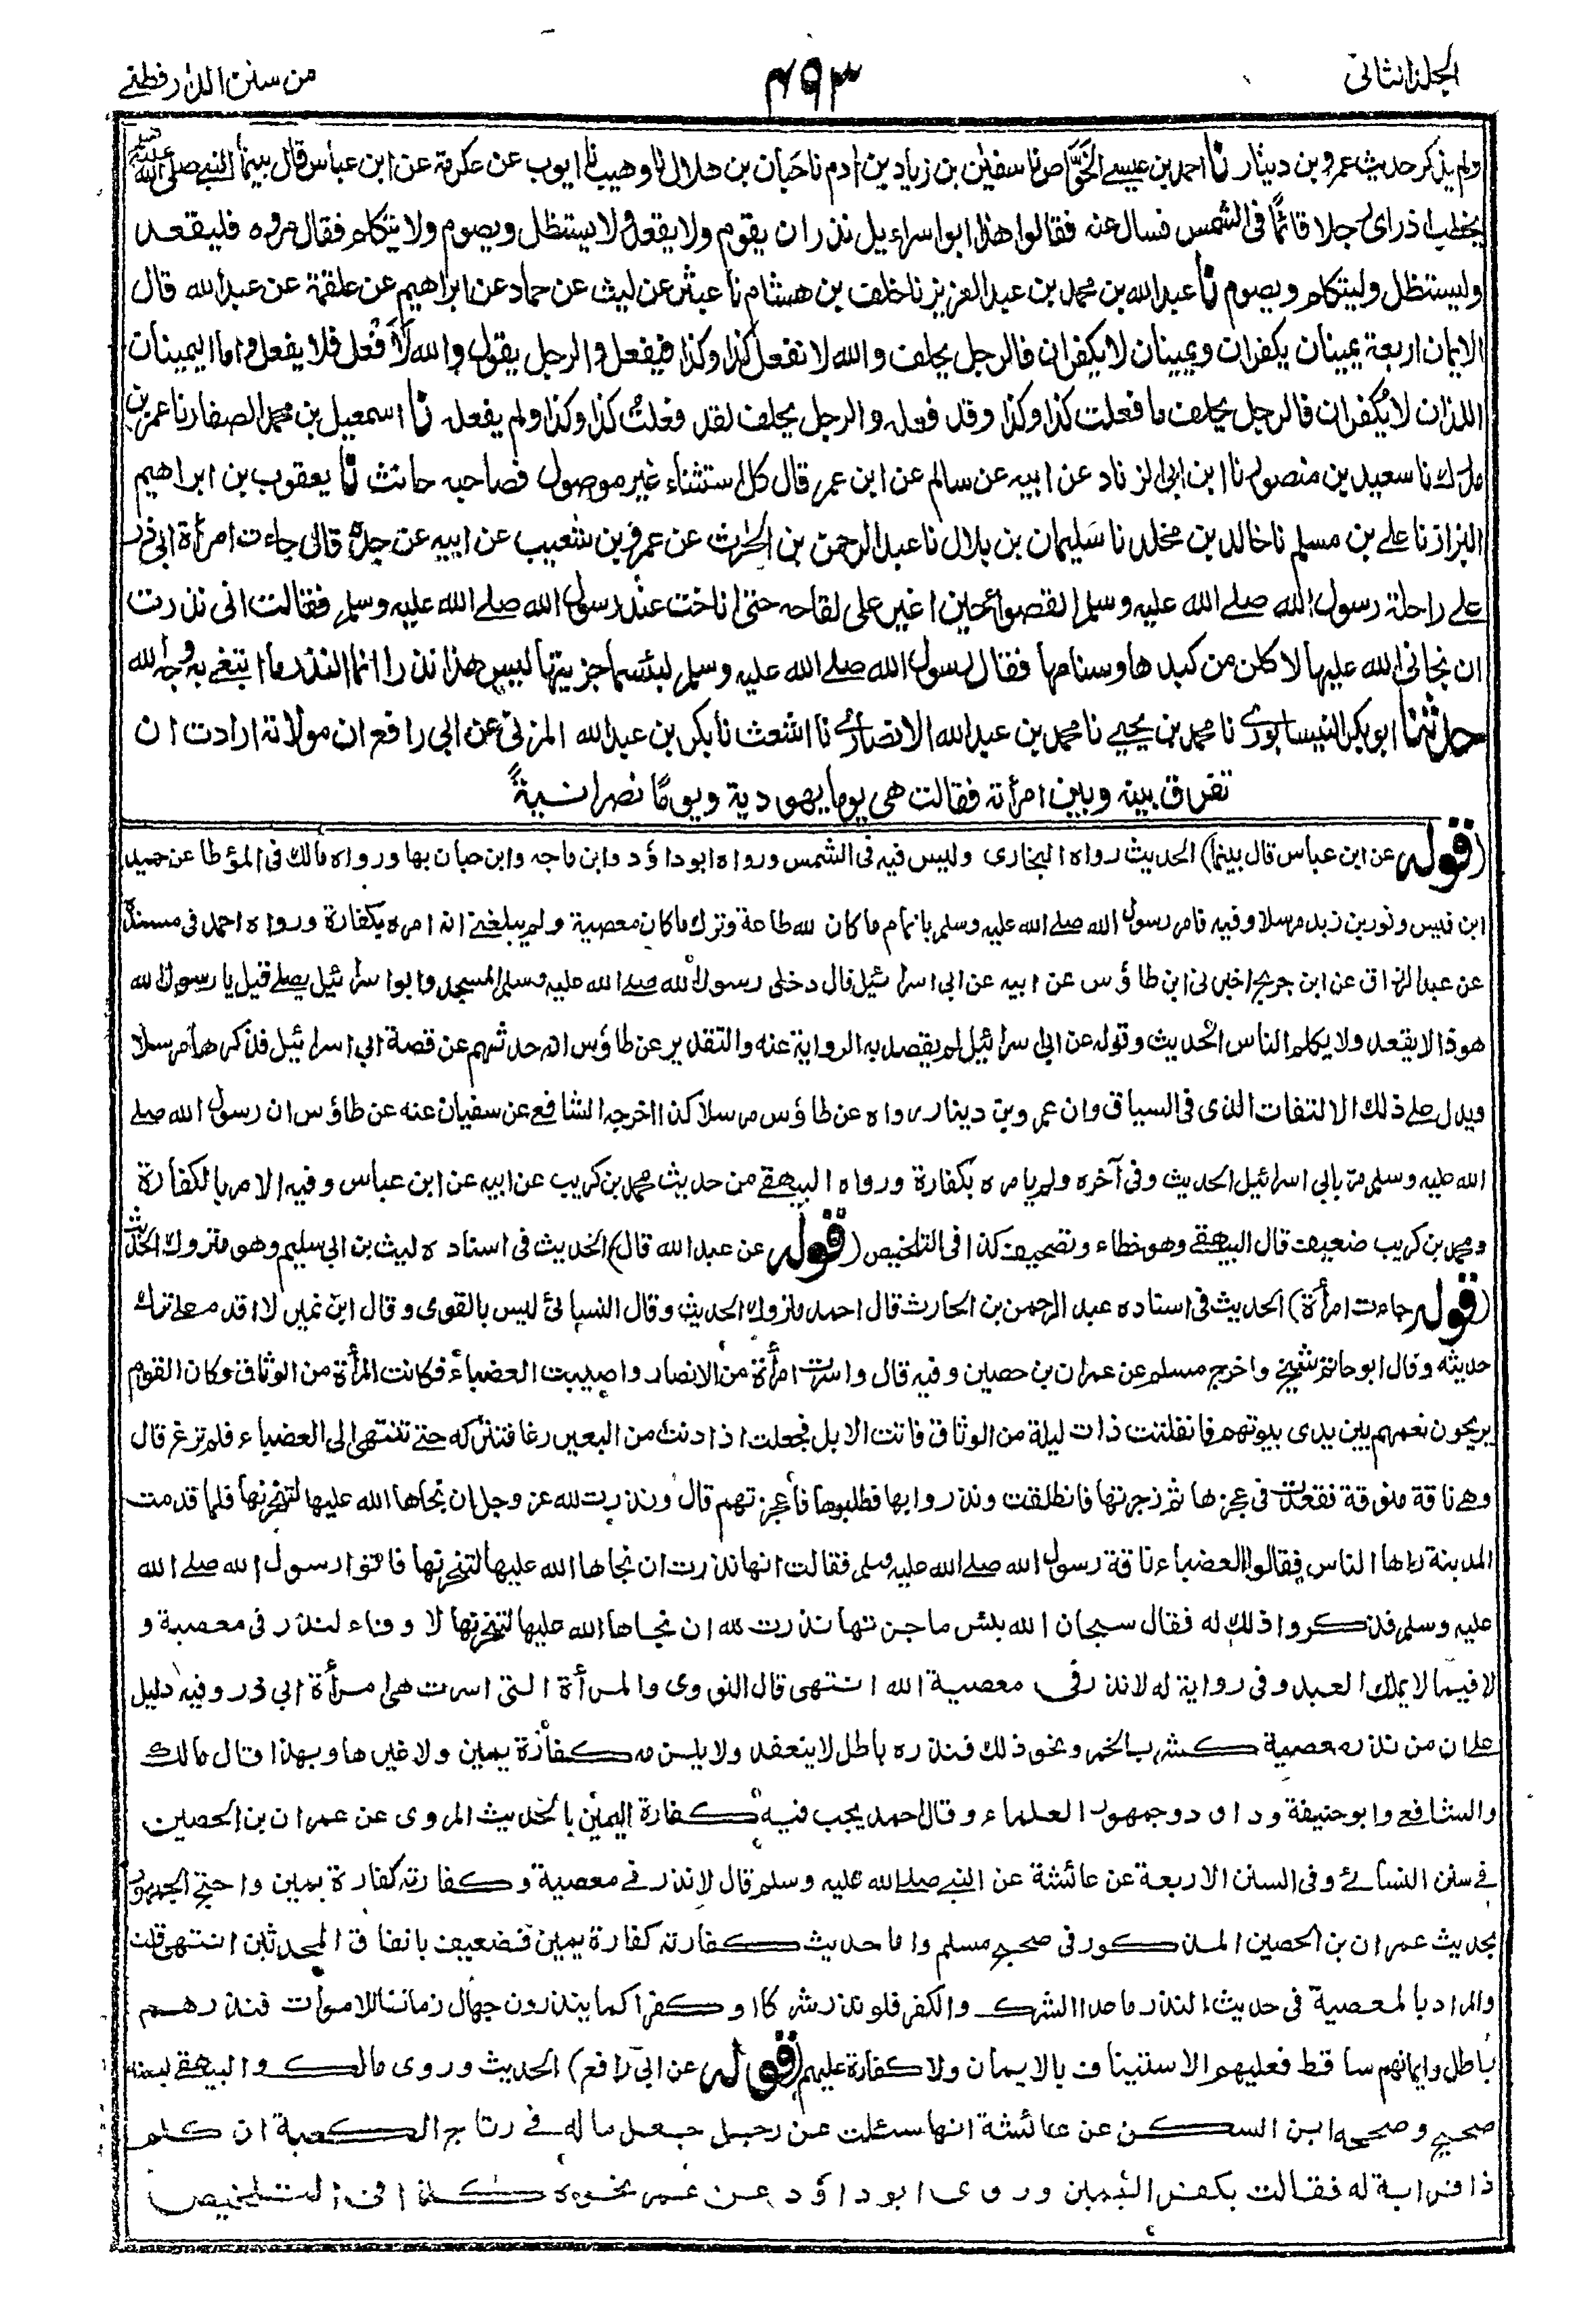 الجلد الثانى
٤٩٣
من سنن الدارقطنے
ولم يذكر حديث عمرو بن دينار نا احمد بن عيسے الخَوَّاص نا سفين بن زياد بن ادم نا حَبان بن هلال نا وهيب نا ايوب عن عكرمة عن ابن عباس قال بينما النبے صلى الله عليه
يخطب اذ راى رجلا قائمًا فى الشمس فسال عنه فقالوا هذا ابو اسراءيل نذر ان يقوم ولا يقعد ولا يستظل ويصوم ولا يتكلم فقال مروه فليقعد
وليستظل وليتكلم ويصوم نا عبد الله بن محمد بن عبد العزيز نا خلف بن هشام نا عبثر عن ليث عن حماد عن ابراهيم عن علقمة عن عبد الله قال
الايمان اربعة يمينان يكفران ويمينان لا يكفران فالرجل يحلف والله لا نفعل كذا وكذا فيفعل والرجل يقول والله لَاَفْعل فلا يفعل واما اليمينان
اللذان لا يُكفران فالرجل يحلف ما فعلت كذا وكذا وقد فعله والرجل يحلف لقد فعلتُ كذا وكذا ولم يفعله نا اسمعيل بن محمد الصفار نا عمر بن
مدرك نا سعيد بن منصور نا ابن ابى الزناد عن ابيه عن سالم عن ابن عمر قال كل استثناء غير موصول فصاحبه حانث نا يعقوب بن ابراهيم
البزاز نا علے بن مسلم نا خالد بن مخلد نا سَليمان بن بلال نا عبد الرحمن بن الحٰرث عن عمرو بن شعيب عن ابيه عن جده قال جاءت امرأة ابى ذر
علے راحلة رسول الله صلے الله عليه وسلم القصواء حين اغير على لقاحه حتى اناخت عند رسول الله صلے الله عليه وسلم فقالت انى نذرت
ان نجانى الله عليها لاكلن من كبدها وسنامها فقال رسول الله صلے الله عليه وسلم لبئسما جزيتها ليس هذا نذرا انما النذر ما ابتغے به وجه الله
حدثنا ابو بكر النيسابورى نا محمد بن يحيے نا محمد بن عبد الله الانصارى نا اشعث نا بكر بن عبد الله المزنى عن ابى رافع ان مولاته ارادت ان
تفرق بينه وبين امرأته فقالت هى يوما يهودية ويومًا نصرانيةً
(قوله عن ابن عباس قال بينما) الحديث رواه البخارى وليس فيه فى الشمس ورواه ابو داؤد وابن ماجه وابن حبان بها ورواه مالك فى المؤطا عن حميد
ابن قيس وثور بن زيد مرسلا وفيه فامر رسول الله صلے الله عليه وسلم باتمام ما كان لله طاعة وترك ما كان معصية ولم يبلغنے انه امره بكفارة ورواه احمد فى مسنده
عن عبد الرزاق عن ابن جريج اخبرنى ابن طاؤس عن ابيه عن ابى اسرائيل قال دخل رسول الله صلے الله عليه وسلم المسجد وابو اسرائيل يصلے قيل يا رسول الله
هو ذا لا يقعد ولا يكلم الناس الحديث وقوله عن ابى اسرائيل لم يقصد به الرواية عنه والتقدير عن طاؤس انه حدثهم عن قصة ابى اسرائيل فذكرها مرسلا
ويدل على ذلك الالتفات الذى فى السياق وان عمرو بن دينار رواه عن طاؤس مرسلا كذا اخرجه الشافعے عن سفيان عنه عن طاؤس ان رسول الله صلے
الله عليه وسلم مر بابى اسرائيل الحديث وفى آخره ولم يامره بكفارة ورواه البيهقے من حديث محمد بن كريب عن ابيه عن ابن عباس وفيه الامر بالكفارة
ومحمد بن كريب ضعيف قال البيهقے وهو خطاء وتصحيف كذا فى التلخيص (قوله عن عبد الله قال) الحديث فى اسناده ليث بن ابى سليم وهو متروك الحديث
(قوله جاءت امرأة) الحديث فى اسناده عبد الرحمن بن الحارث قال احمد متروك الحديث وقال النسائى ليس بالقوى وقال ابن نمير لا اقدم على ترك
حديثه وقال ابو حاتم شيخ واخرج مسلم عن عمران بن حصين وفيه قال واسرت امرأة من الانصار واصيبت العضباء فكانت المرأة من الوثاق وكان القوم
يريحون نعمهم بين يدى بيوتهم فانفلتت ذات ليلة من الوثاق فاتت الابل فجعلت اذا دنت من البعير رغا فتتركه حتے تنتهى الى العضباء فلم ترغ قال
وهے ناقة منوقة فقعدت فى عجزها ثم زجرتها فانطلقت ونذروا بها فطلبوها فأعجزتهم قال ونذرت لله عز وجل ان نجاها الله عليها لتنحرنها فلما قدمت
المدينة راها الناس فقالوا العضباء ناقة رسول الله صلے الله عليه وسلم فقالت انها نذرت ان نجاها الله عليها لتنحرنها فاتوا رسول الله صلے الله
عليه وسلم فذكروا ذلك له فقال سبحان الله بئس ما جزتها نذرت لله ان نجاها الله عليها لتنحرنها لا وفاء لنذر فى معصية و
لا فيما لا يملك العبد وفى رواية له لا نذر فى معصية الله انتهى قال النووى والمرأة التى اسرت هى امرأة ابى ذر وفيه دليل
على ان من نذر معصية كشرب الخمر ونحو ذلك فنذره باطل لا ينعقد ولا يلزمه كفارة يمين ولا غيرها وبهذا قال مالك
والشافعے وابو حنيفة وداود وجمهور العلماء وقال احمد يجب فيه كفارة اليمين بالحديث المروى عن عمران بن الحصين
فے سنن النسائے وفى السنن الاربعة عن عائشة عن النبے صلے الله عليه وسلم قال لا نذر فے معصية وكفارته كفارة يمين واحتج الجمهور
بحديث عمران بن الحصين المذكور فى صحيح مسلم واما حديث كفارته كفارة يمين فضعيف باتفاق المحدثين انتهى قلت
والمراد بالمعصية فى حديث النذر ما عدا الشرك والكفر فلو نذر شركا او كفرا كما ينذرون جهال زماننا للاموات فنذرهم
باطل وايمانهم ساقط فعليهم الاستيناف بالايمان ولا كفارة عليهم (قوله عن ابى رافع) الحديث وروى مالك والبيهقے بسند
صحيح وصححه ابن السكن عن عائشة انها سئلت عن رجل جعل ماله فے رتاج الكعبة ان كلم
ذا قرابة له فقالت يكفر اليمين وروى ابو داؤد عن عمر نحوه كذا فى التلخيص